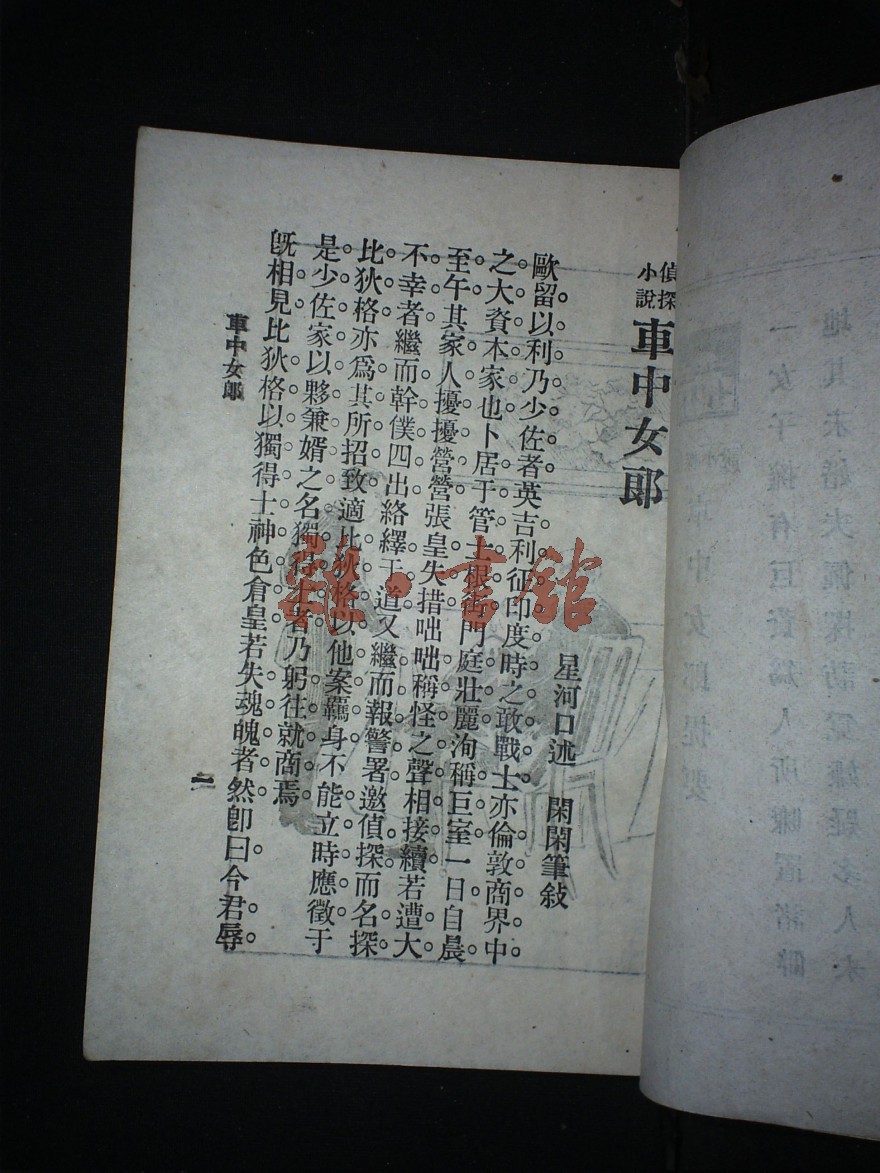 偵探小說 車中女郎
星河口述 閑閑筆敍
歐留以利乃少佐者英吉利征印度時之敢戰士亦倫敦商界中
之大資本家也卜居于管士根街門庭壯麗洵稱巨室一日自晨
至午其家人擾擾營營張皇失措咄咄稱怪之聲相接續若遭大
不幸者繼而幹僕四出絡繹于道又繼而報警署邀偵探而名探
比狄格亦爲其所招致適比狄格以他案羈身不能立時應徵于
是少佐家以夥兼婿之名獨得士者乃躬往就商焉
既相見比狄格以獨得士神色倉皇若失魂魄者然卽曰今君辱
車中女郎
雜·書館